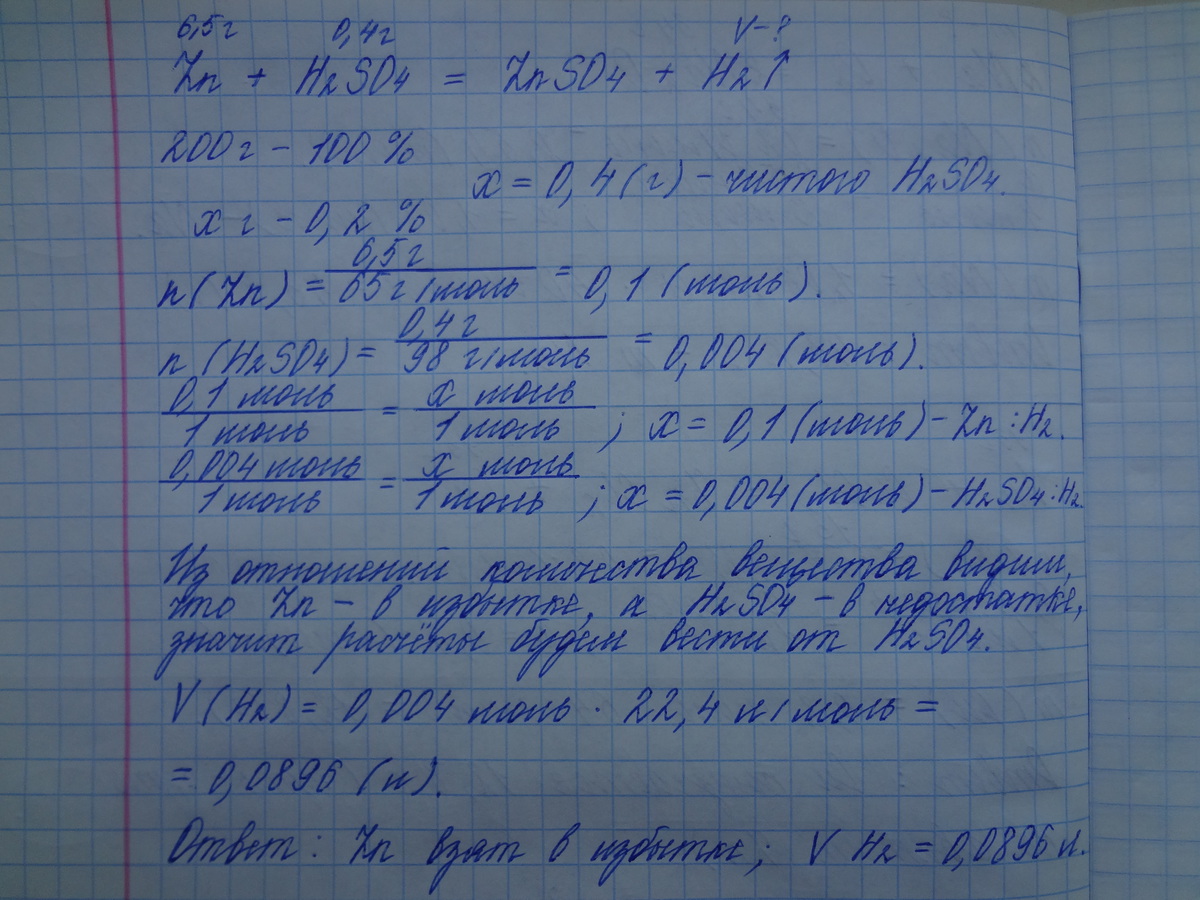 6,5г 0,4г V-?
Zn + H₂SO₄ = ZnSO₄ + H₂↑
200г - 100 %
x = 0,4 (г) - чистого H₂SO₄.
x г - 0,2 %
6,5г
n(Zn) = 65г/моль = 0,1 (моль).
0,4г
n(H₂SO₄) = 98 г/моль = 0,004 (моль).
0,1 моль = x моль
1 моль 1 моль ; x = 0,1 (моль) - Zn : H₂.
0,004 моль = x моль
1 моль 1 моль ; x = 0,004 (моль) - H₂SO₄ : H₂.
Из отношений количества вещества видим,
что Zn - в избытке, а H₂SO₄ - в недостатке,
значит расчёты будем вести от H₂SO₄.
V (H₂) = 0,004 моль · 22,4 л/моль =
= 0,0896 (л).
Ответ: Zn взят в избытке; V H₂ = 0,0896 л.